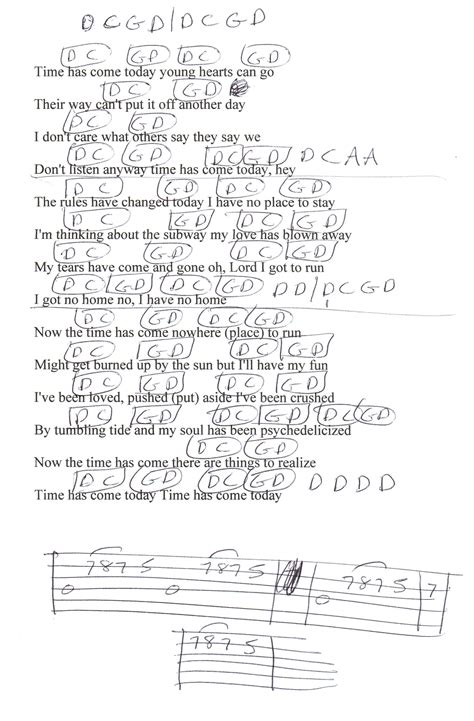 D C G D / D C G D
D C G D D C G D
Time has come today young hearts can go
D C G D
Their way can't put it off another day
D C G D
I don't care what others say they say we
D C G D D C G D D C A A
Don't listen anyway time has come today, hey
D C G D D C G D
The rules have changed today I have no place to stay
D C G D D C G D
I'm thinking about the subway my love has blown away
D C G D D C G D
My tears have come and gone oh, Lord I got to run
D C G D D C G D D D / D C G D
I got no home no, I have no home
D C G D D C G D
Now the time has come nowhere (place) to run
D C G D D C G D
Might get burned up by the sun but I'll have my fun
D C G D D C G D
I've been loved, pushed (put) aside I've been crushed
D C G D D C G D D C G D
By tumbling tide and my soul has been psychedelicized
D C G D
Now the time has come there are things to realize
D C G D D C G D D D D D
Time has come today Time has come today
7 8 7 5 7 8 7 5 7 8 7 5 7
0 0 0
7 8 7 5